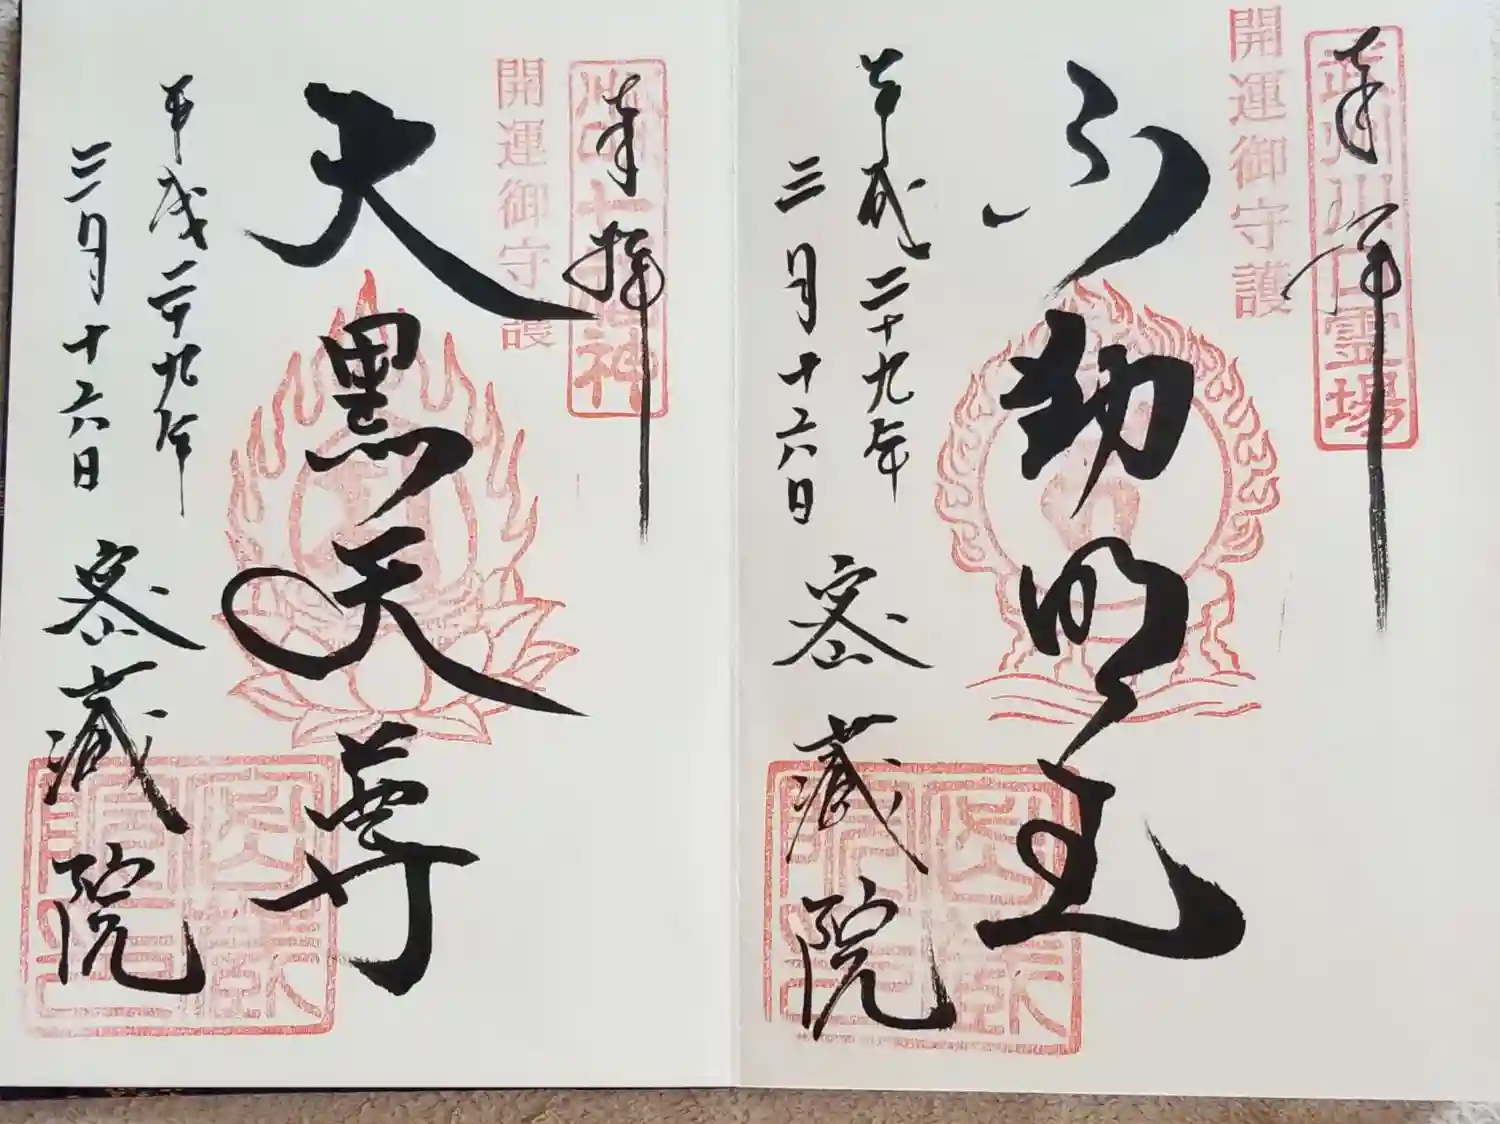 奉拝
武州川口霊場
開運御守護
不動明王
平成二十九年
三月十六日
密蔵院
奉拝
武州川口七福神
開運御守護
大黒天尊
平成二十九年
三月十六日
密蔵院